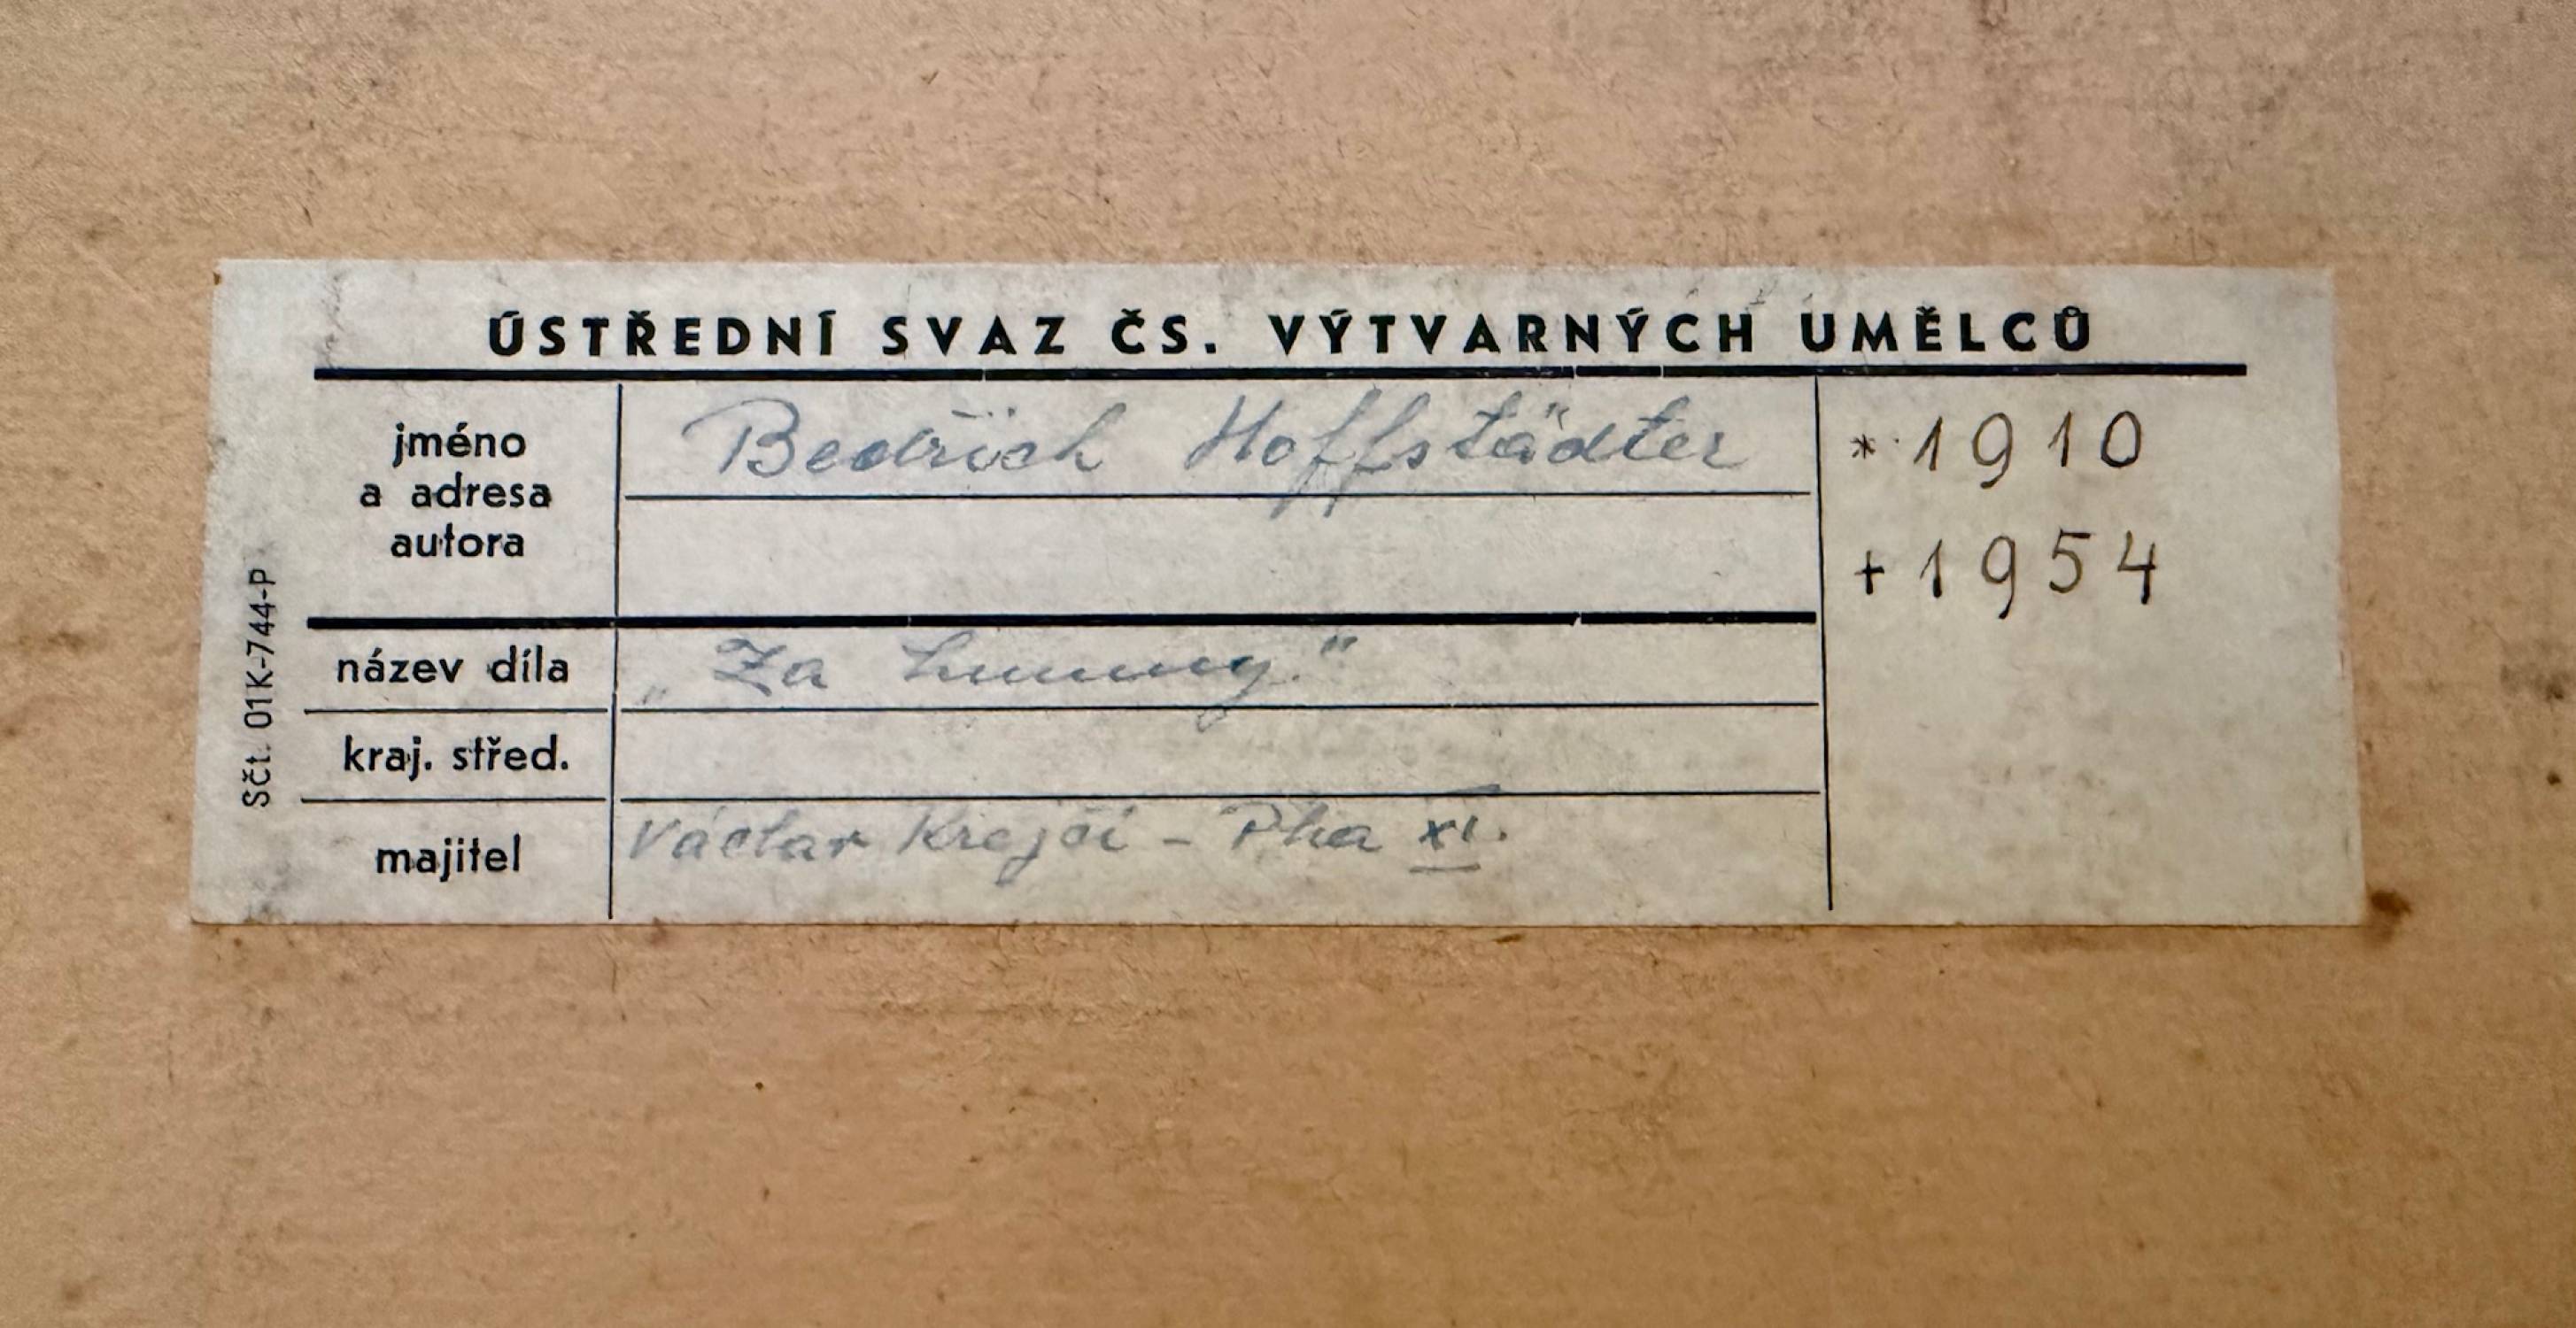 ÚSTŘEDNÍ SVAZ ČS. VÝTVARNÝCH UMĚLCŮ
jméno
a adresa
autora
Bedřich Hoffstädter
* 1910
+ 1954
název díla
„Za humny"
kraj. střed.
majitel
Václav Krejčí - Pha XI.
Sčt. 01K-744-P